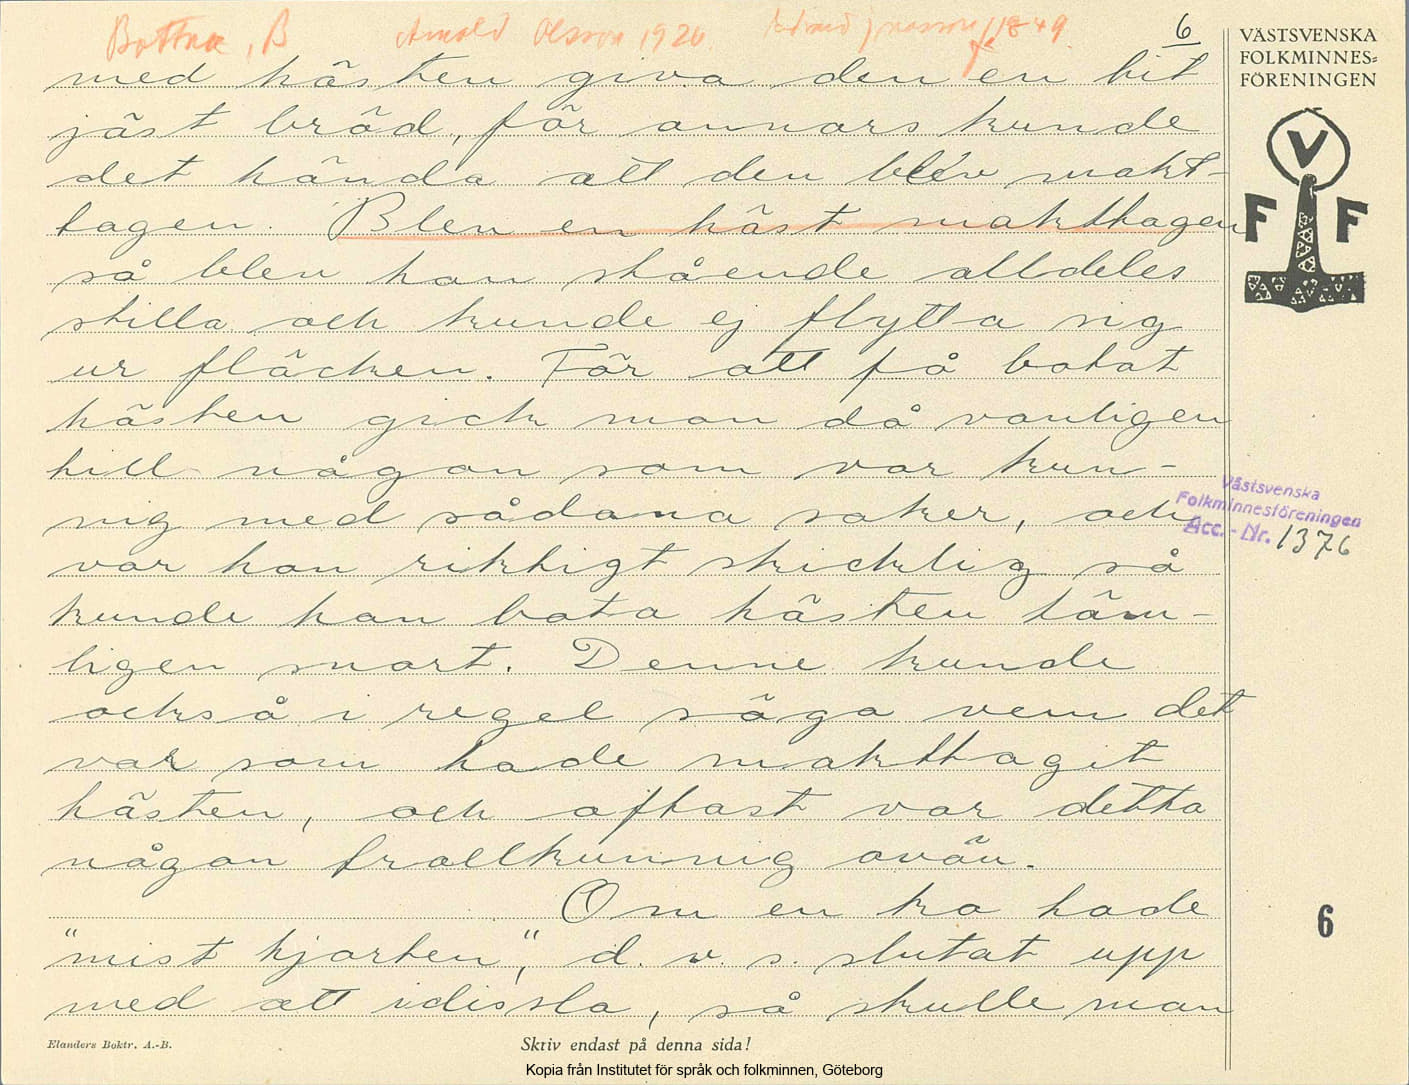 Bottna, B Arnold Olsson 1926 1849
6
med hästen giva den en bit
jäst bröd, för annars kunde
det hända att den blev makt-
tagen. Blev en häst makttagen
så blev han stående alldeles
stilla och kunde ej flytta sig
ur fläcken. För att få botat
hästen gick man då vanligen
till någon som var kun-
nig med sådana saker, och
var han riktigt skicklig så
kunde han bota hästen täm-
ligen snart. Denne kunde
också i regel säga vem det
var som hade makttagit
hästen, och oftast var detta
någon trollkunnig ovän.
Om en ko hade
"mist hjorten", d. v. s. slutat upp
med att idissla, så skulle man
VÄSTSVENSKA
FOLKMINNES=
FÖRENINGEN
V
F F
Västsvenska
Folkminnesföreningen
Acc.-Nr. 1376
6
Elanders Boktr. A.-B.
Skriv endast på denna sida!
Kopia från Institutet för språk och folkminnen, Göteborg